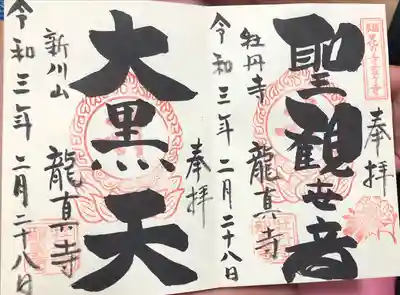 奉拝
聖観世音
牡丹寺 龍真寺
令和三年二月二十八日
奉拝
大黒天
新川山 龍真寺
令和三年二月二十八日